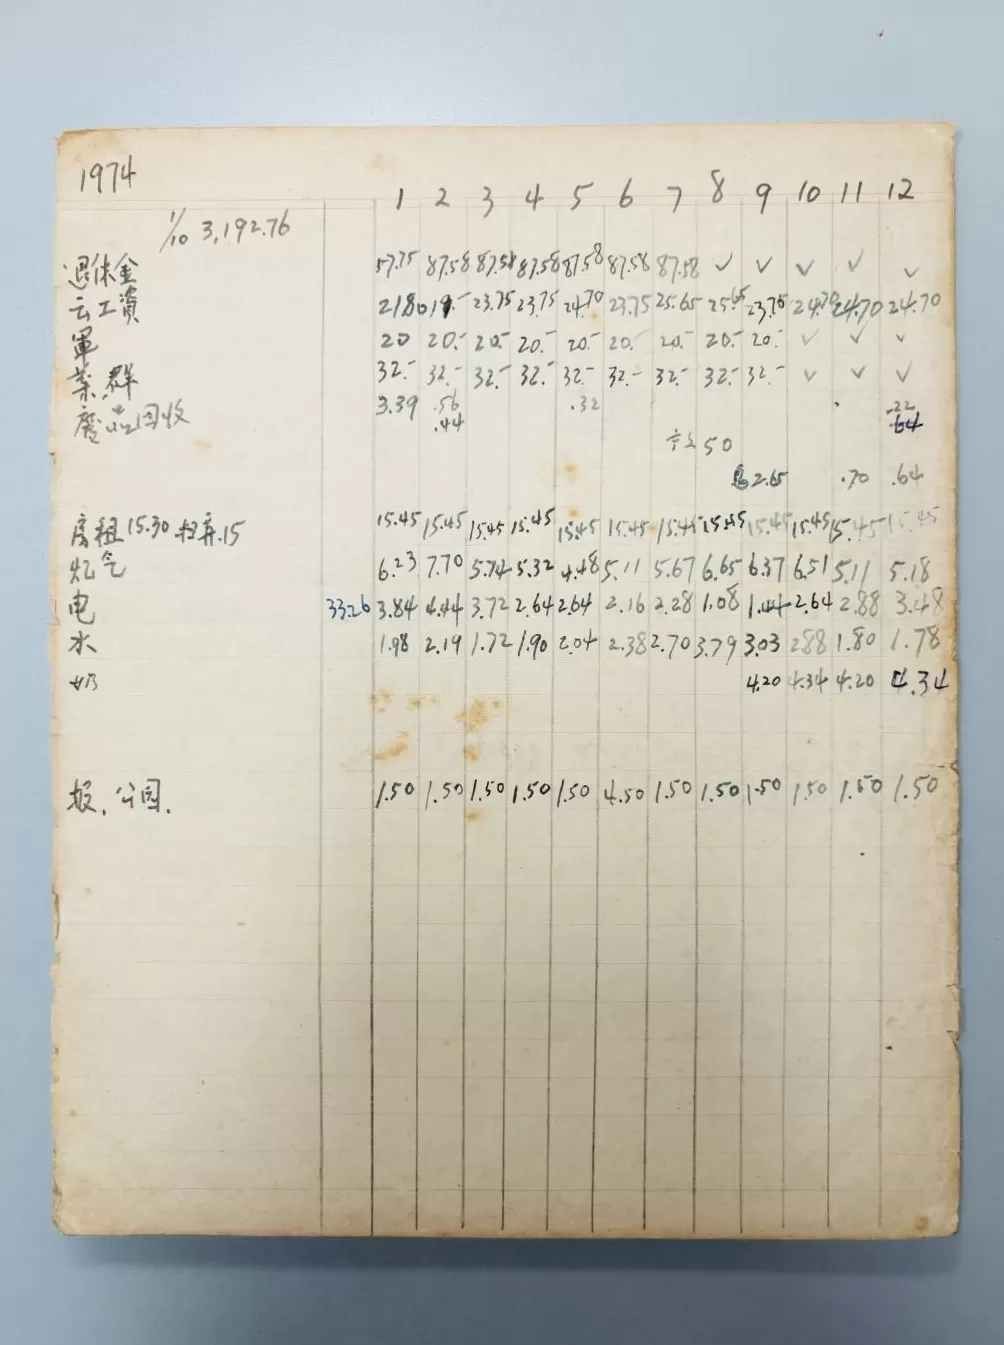 1974
1 2 3 4 5 6 7 8 9 10 11 12
1/10 3,192.76
退休金 57.75 87.58 87.58 87.58 87.58 87.58 87.58 ✓ ✓ ✓ ✓ ✓
云工資 21.80 19.- 23.75 23.75 24.70 23.75 25.65 25.65 23.75 24.70 24.70 24.70
軍 20 20.- 20.- 20.- 20.- 20.- 20.- 20.- 20.- ✓ ✓ ✓
葉.群 32.- 32.- 32.- 32.- 32.- 32.- 32.- 32.- 32.- ✓ ✓ ✓
廢品回收 3.39 .56 .32 .22
.44 .64
50
2.65 .70 .64
房租15.30 扫弃.15 15.45 15.45 15.45 15.45 15.45 15.45 15.45 15.45 15.45 15.45 15.45 15.45
煤气 6.23 7.70 5.74 5.32 4.48 5.11 5.67 6.65 6.37 6.51 5.11 5.18
电 3326 3.84 4.44 3.72 2.64 2.64 2.16 2.28 1.08 1.44 2.64 2.88 3.48
水 1.98 2.19 1.72 1.90 2.04 2.38 2.70 3.79 3.03 2.88 1.80 1.78
奶 4.20 4.34 4.20 4.34
报.公园. 1.50 1.50 1.50 1.50 1.50 4.50 1.50 1.50 1.50 1.50 1.50 1.50